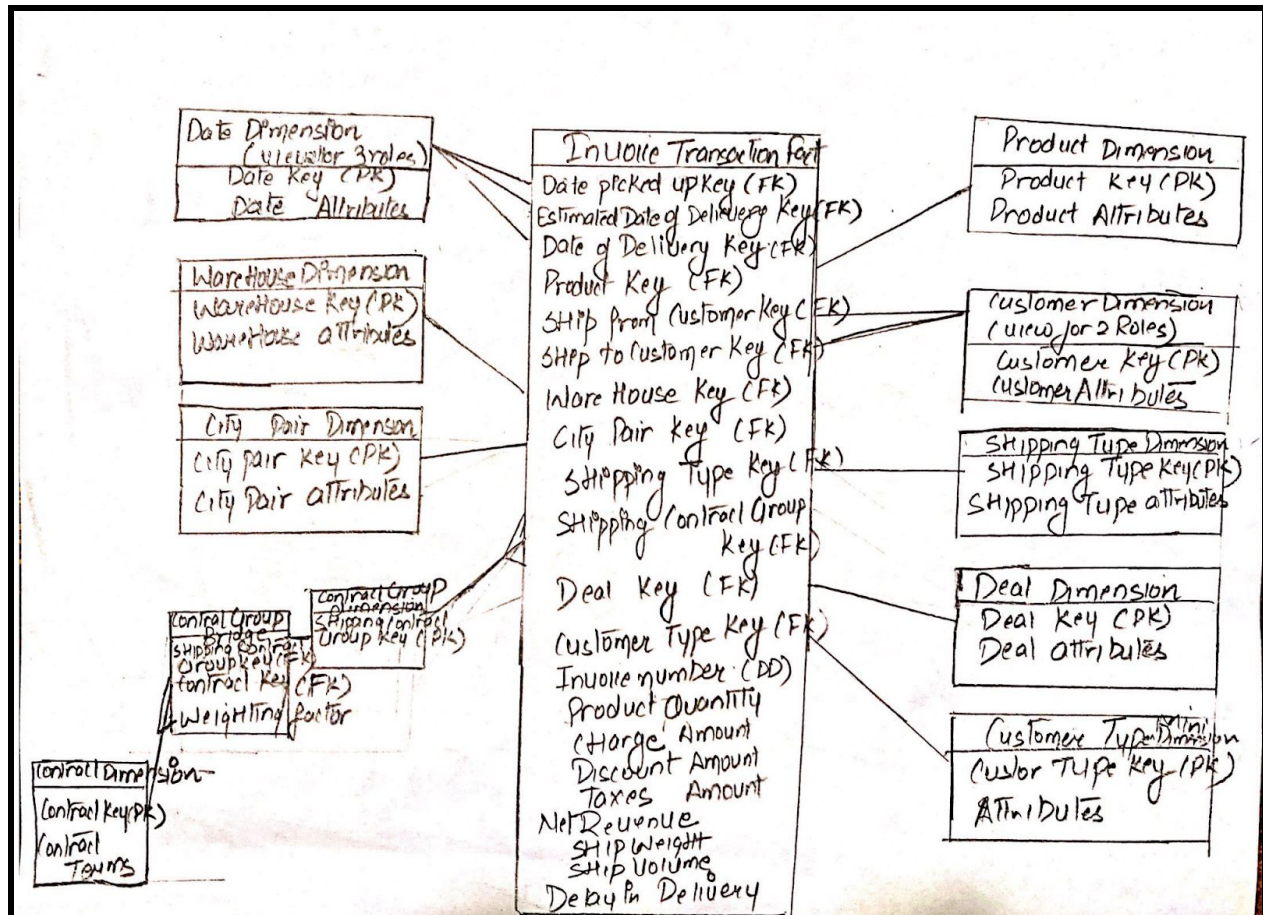 Date Dimension
(view for 3 roles)
Date Key (PK)
Date Attributes
WareHouse Dimension
WareHouse Key (PK)
WareHouse attributes
City Pair Dimension
City pair Key (PK)
City Pair attributes
Contract Group
Dimension
Shipping Contract
Group Key (PK)
Contract Group
Bridge
Shipping Contract
Group Key (FK)
Contract Key (FK)
Weighting factor
Contract Dimension
Contract Key (PK)
Contract
Terms
Invoice Transaction Fact
Date picked up Key (FK)
Estimated Date of Delievery Key (FK)
Date of Delivery Key (FK)
Product Key (FK)
Ship from Customer Key (FK)
Ship to Customer Key (FK)
Ware House Key (FK)
City Pair Key (FK)
Shipping Type Key (FK)
Shipping Contract Group
Key (FK)
Deal Key (FK)
Customer Type Key (FK)
Invoice number (DD)
Product Quantity
Charge Amount
Discount Amount
Taxes Amount
Net Revenue
Ship Weight
Ship Volume
Delay in Delivery
Product Dimension
Product Key (PK)
Product Attributes
Customer Dimension
(view for 2 Roles)
Customer Key (PK)
Customer Attributes
Shipping Type Dimension
Shipping Type Key (PK)
Shipping Type attributes
Deal Dimension
Deal Key (PK)
Deal attributes
Customer Type Mini Dimension
Custor Type Key (PK)
Attributes